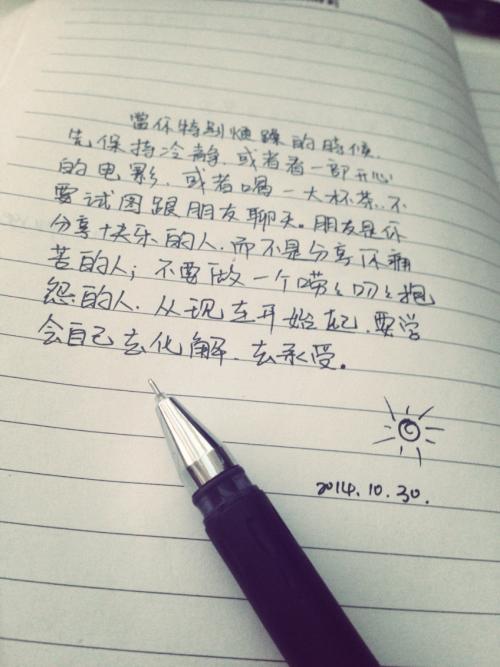 當你特别烦躁的時候，
先保持冷静，或者看一部开心
的电影，或者喝一大杯茶，不
要试图跟朋友聊天。朋友是你
分享快乐的人，而不是分享你痛
苦的人；不要做一个唠唠叨叨抱
怨的人，从现在开始起，要学
会自己去化解，去承受。
2014.10.30.